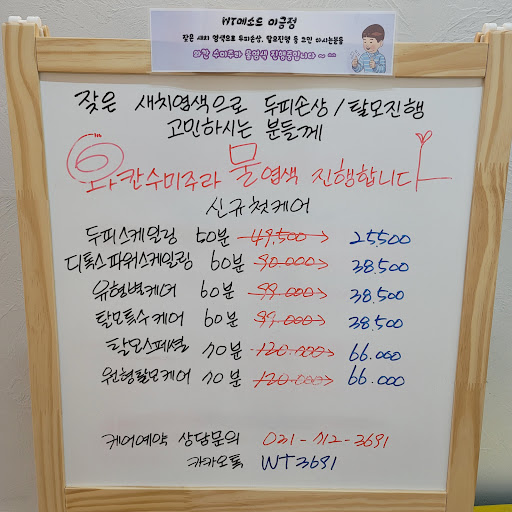 WT메소드 이금정
잦은 새치 염색으로 두피손상, 탈모진행 등 고민 하시는분들
와칸 수미주라 물염색 진행중입니다~~~
잦은 새치염색으로 두피손상/탈모진행
고민하시는 분들께
와칸수미주라 물염색 진행합니다
신규첫케어
두피스케일링 50분 49,500 → 25500
디톡스파워스케일링 60분 90.000 → 38.500
유형별케어 60분 99.000 → 38.500
탈모특수케어 60분 99.000 → 38.500
탈모스페셜 70분 120.000 → 66.000
원형탈모케어 70분 120.000 → 66.000
케어예약 상담문의 031-712-3691
카카오톡 WT3691